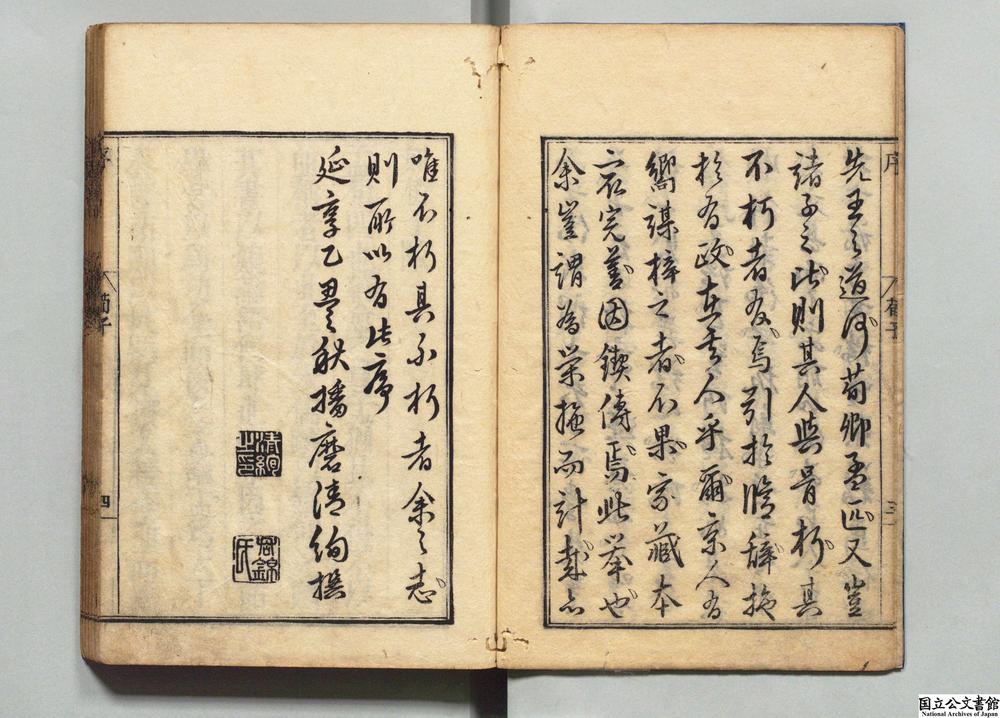 序
荀子
三
先王之道何荀卿孟匹又豈
諸子之比則其人與骨朽其
不朽者友焉引於脩辭施
於為政在其人乎爾京人有
嚮謀梓之者不果家藏本
完善因鍥傳焉此舉也
余豈謂為榮施而計哉
唯不朽其不朽者余之志
則所以有此序
延享乙丑秋播磨清絢撰
清絢之印
君錦氏
序
荀子
四
国立公文書館
National Archives of Japan